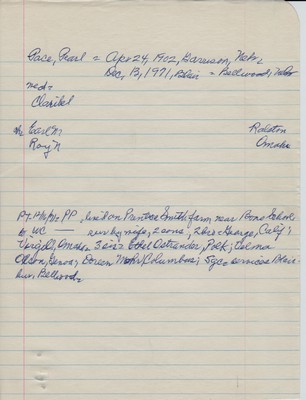 Pace, Pearl = Apr 24, 1902, Garrison, Nebr.
Dec. 13, 1971, Blair = Bellwood, Nebr
md=
Claribel
Earl N. Ralston
Roy N Omaha
PP, lived on Prentice Smith farm near Bone School
to WC — surv by wife, 2 sons, 2 bros George, Calif;
Virgil, Omaha 3 sis= Ethel Ostrander, Polk; Celma
Olson, Genoa; Doreen Mohr, Columbus; 5 gc= services Blair
bur. Bellwood